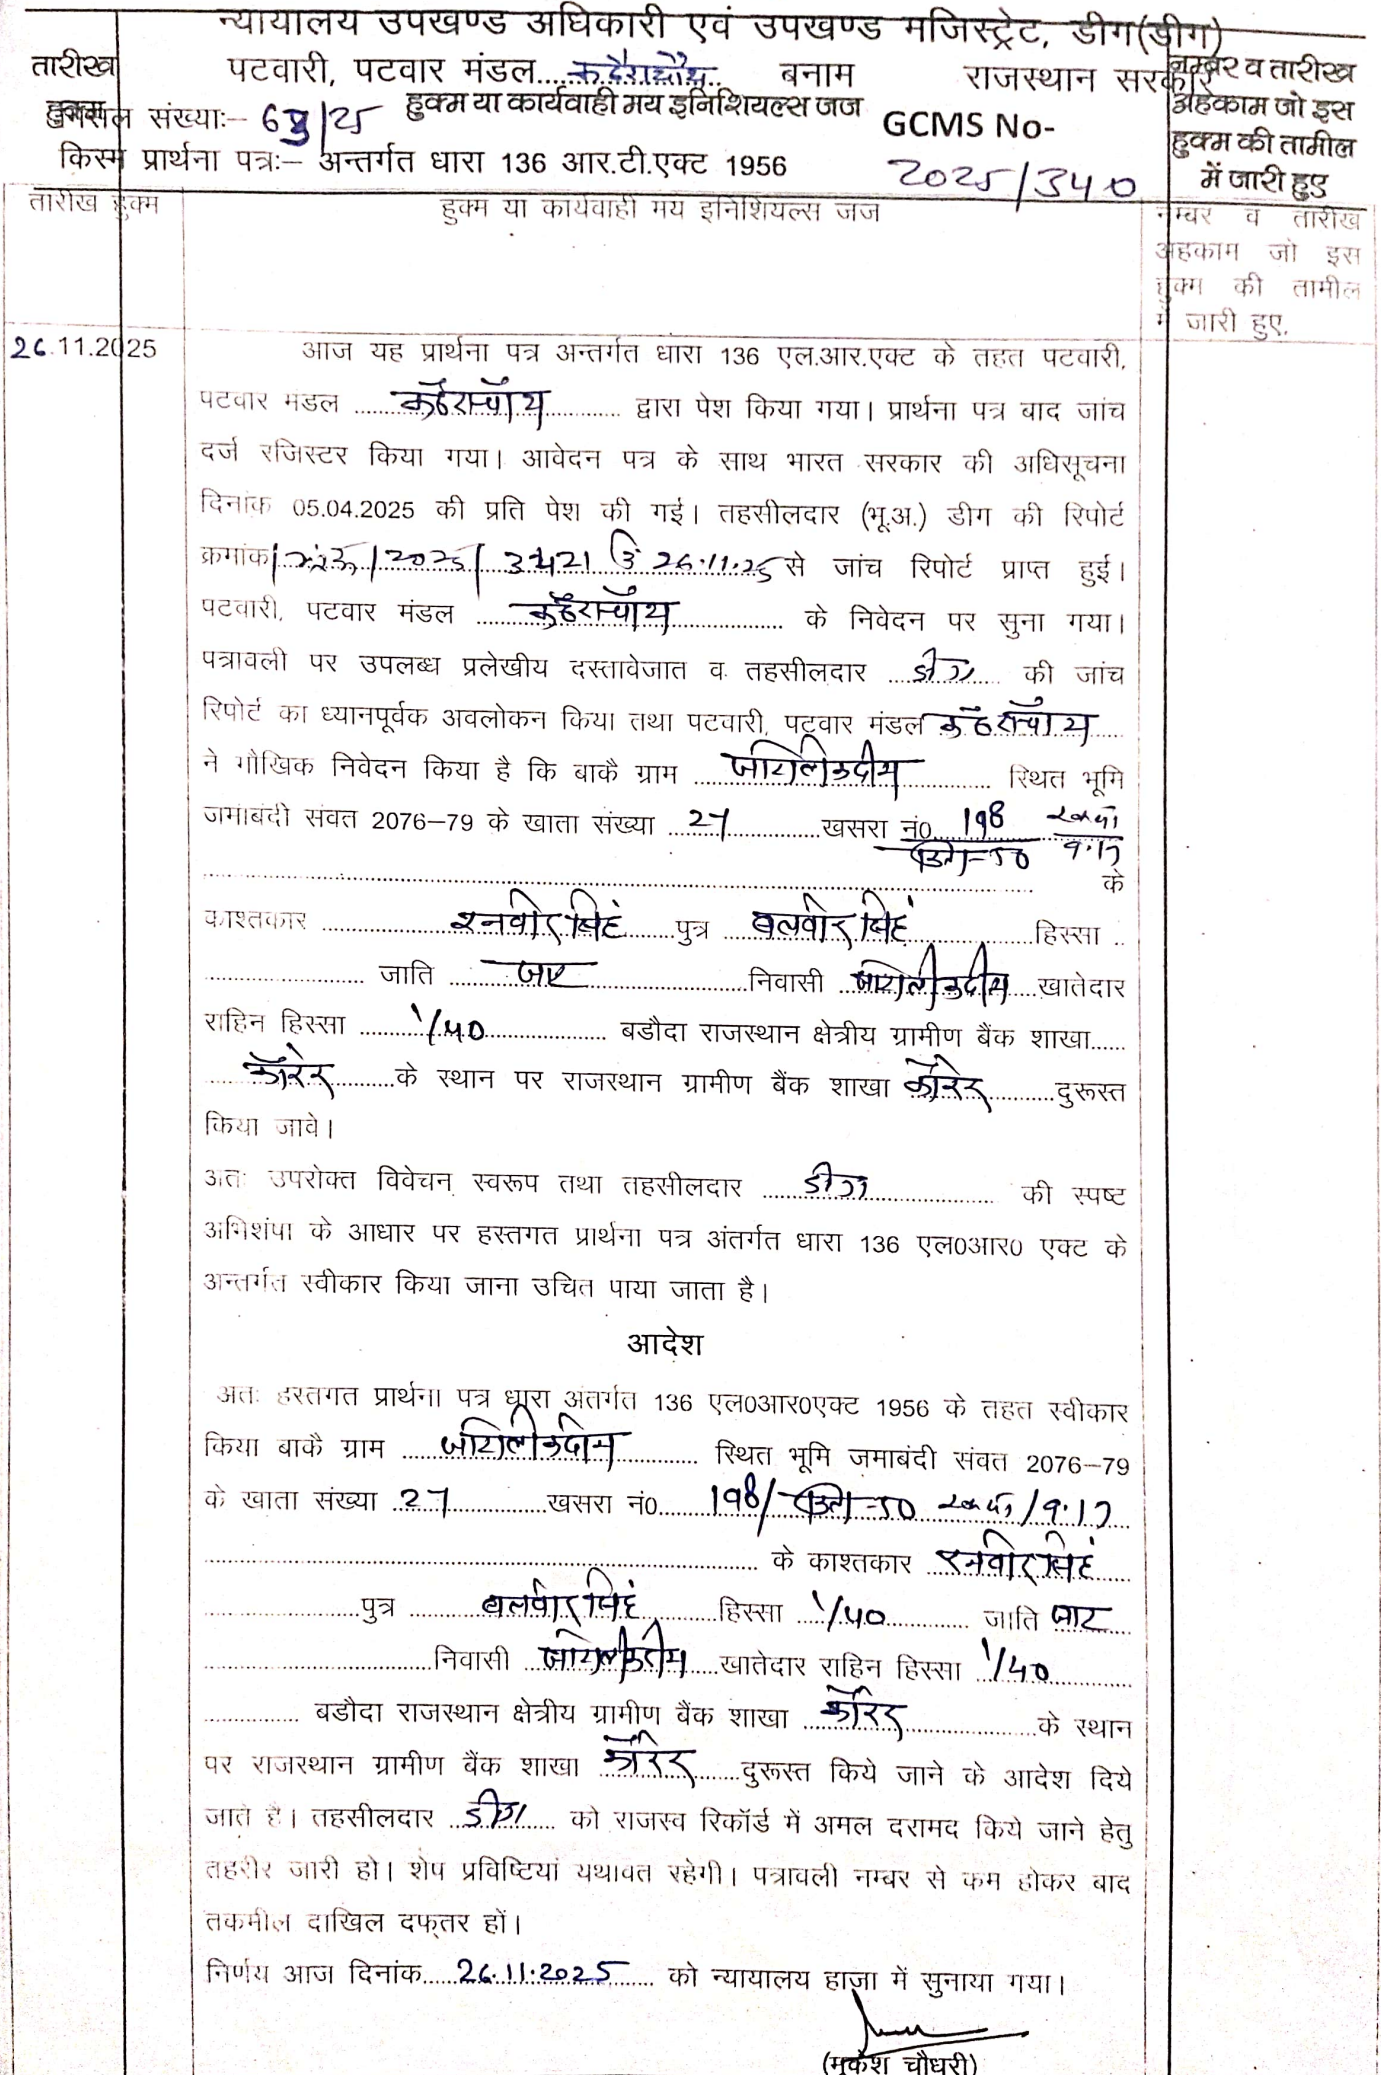 न्यायालय उपखण्ड अधिकारी एवं उपखण्ड मजिस्ट्रेट, डीग(डीग)
तारीख हुक्म
पटवारी, पटवार मंडल.... बनाम राजस्थान सरकार
नम्बर व तारीख
मिसल संख्याः– /25 हुक्म या कार्यवाही मय इनिशियल्स जज GCMS No-
अहकाम जो इस
हुक्म की तामील
किस्म प्रार्थना पत्रः– अन्तर्गत धारा 136 आर.टी.एक्ट 1956 2025/340
में जारी हुए
तारीख हुक्म हुक्म या कार्यवाही मय इनिशियल्स जज नम्बर व तारीख
अहकाम जो इस
हुक्म की तामील
में जारी हुए.
26.11.2025 आज यह प्रार्थना पत्र अन्तर्गत धारा 136 एल.आर.एक्ट के तहत पटवारी,
पटवार मंडल .......... द्वारा पेश किया गया। प्रार्थना पत्र बाद जांच
दर्ज रजिस्टर किया गया। आवेदन पत्र के साथ भारत सरकार की अधिसूचना
दिनांक 05.04.2025 की प्रति पेश की गई। तहसीलदार (भू.अ.) डीग की रिपोर्ट
क्रमांक /2025/ 26.11.25 से जांच रिपोर्ट प्राप्त हुई।
पटवारी, पटवार मंडल .......... के निवेदन पर सुना गया।
पत्रावली पर उपलब्ध प्रलेखीय दस्तावेजात व तहसीलदार ..डीग.. की जांच
रिपोर्ट का ध्यानपूर्वक अवलोकन किया तथा पटवारी, पटवार मंडल
ने मौखिक निवेदन किया है कि बाकै ग्राम .......... स्थित भूमि
जमाबंदी संवत 2076–79 के खाता संख्या ..27.. खसरा नं0 198 रकबा
किता-50 9.17
के
काश्तकार ....रनवीर सिंह.... पुत्र ....बलवीर सिंह.... हिस्सा ..
.......... जाति ..जाट.. निवासी .......... खातेदार
राहिन हिस्सा ....1/40.... बडौदा राजस्थान क्षेत्रीय ग्रामीण बैंक शाखा......
....कॉरेर.... के स्थान पर राजस्थान ग्रामीण बैंक शाखा कॉरेर ....दुरूस्त
किया जावे।
अतः उपरोक्त विवेचन स्वरूप तथा तहसीलदार ....डीग.... की स्पष्ट
अभिशंषा के आधार पर हस्तगत प्रार्थना पत्र अंतर्गत धारा 136 एल0आर0 एक्ट के
अन्तर्गत स्वीकार किया जाना उचित पाया जाता है।
आदेश
अतः हस्तगत प्रार्थना पत्र धारा अंतर्गत 136 एल0आर0एक्ट 1956 के तहत स्वीकार
किया बाकै ग्राम .......... स्थित भूमि जमाबंदी संवत 2076–79
के खाता संख्या 27 ....खसरा नं0.... 198/ किता-50 रकबा/9.17
.......... के काश्तकार ..रनवीर सिंह..
....पुत्र ....बलवीर सिंह.... हिस्सा ..1/40.. जाति जाट
....निवासी .......... खातेदार राहिन हिस्सा 1/40
.......... बडौदा राजस्थान क्षेत्रीय ग्रामीण बैंक शाखा ..कॉरेर.. के स्थान
पर राजस्थान ग्रामीण बैंक शाखा ..कॉरेर.. दुरूस्त किये जाने के आदेश दिये
जाते है। तहसीलदार ..डीग.. को राजस्व रिकॉर्ड में अमल दरामद किये जाने हेतु
तहरीर जारी हो। शेष प्रविष्टियां यथावत रहेगी। पत्रावली नम्बर से कम होकर बाद
तकमील दाखिल दफ्तर हों।
निर्णय आज दिनांक....26.11.2025.... को न्यायालय हाजा में सुनाया गया।
(मुकेश चौधरी)